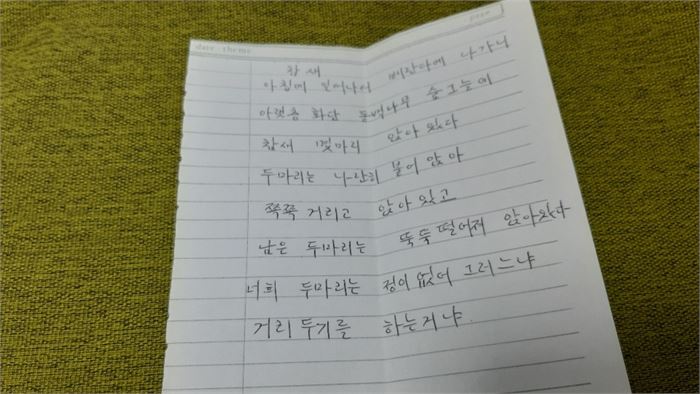 date . theme
page
참새
아침에 일어나서 베란다에 나가니
아랫층 화단 동백나무 숲 그늘에
참새 몇마리 앉아 있다
두마리는 나란히 붙어 앉아
쪽쪽 거리고 앉아 있고
남은 두마리는 뚝뚝 떨어져 앉아있다
너희 두마리는 정이 없어 그러느냐
거리 두기를 하는거냐